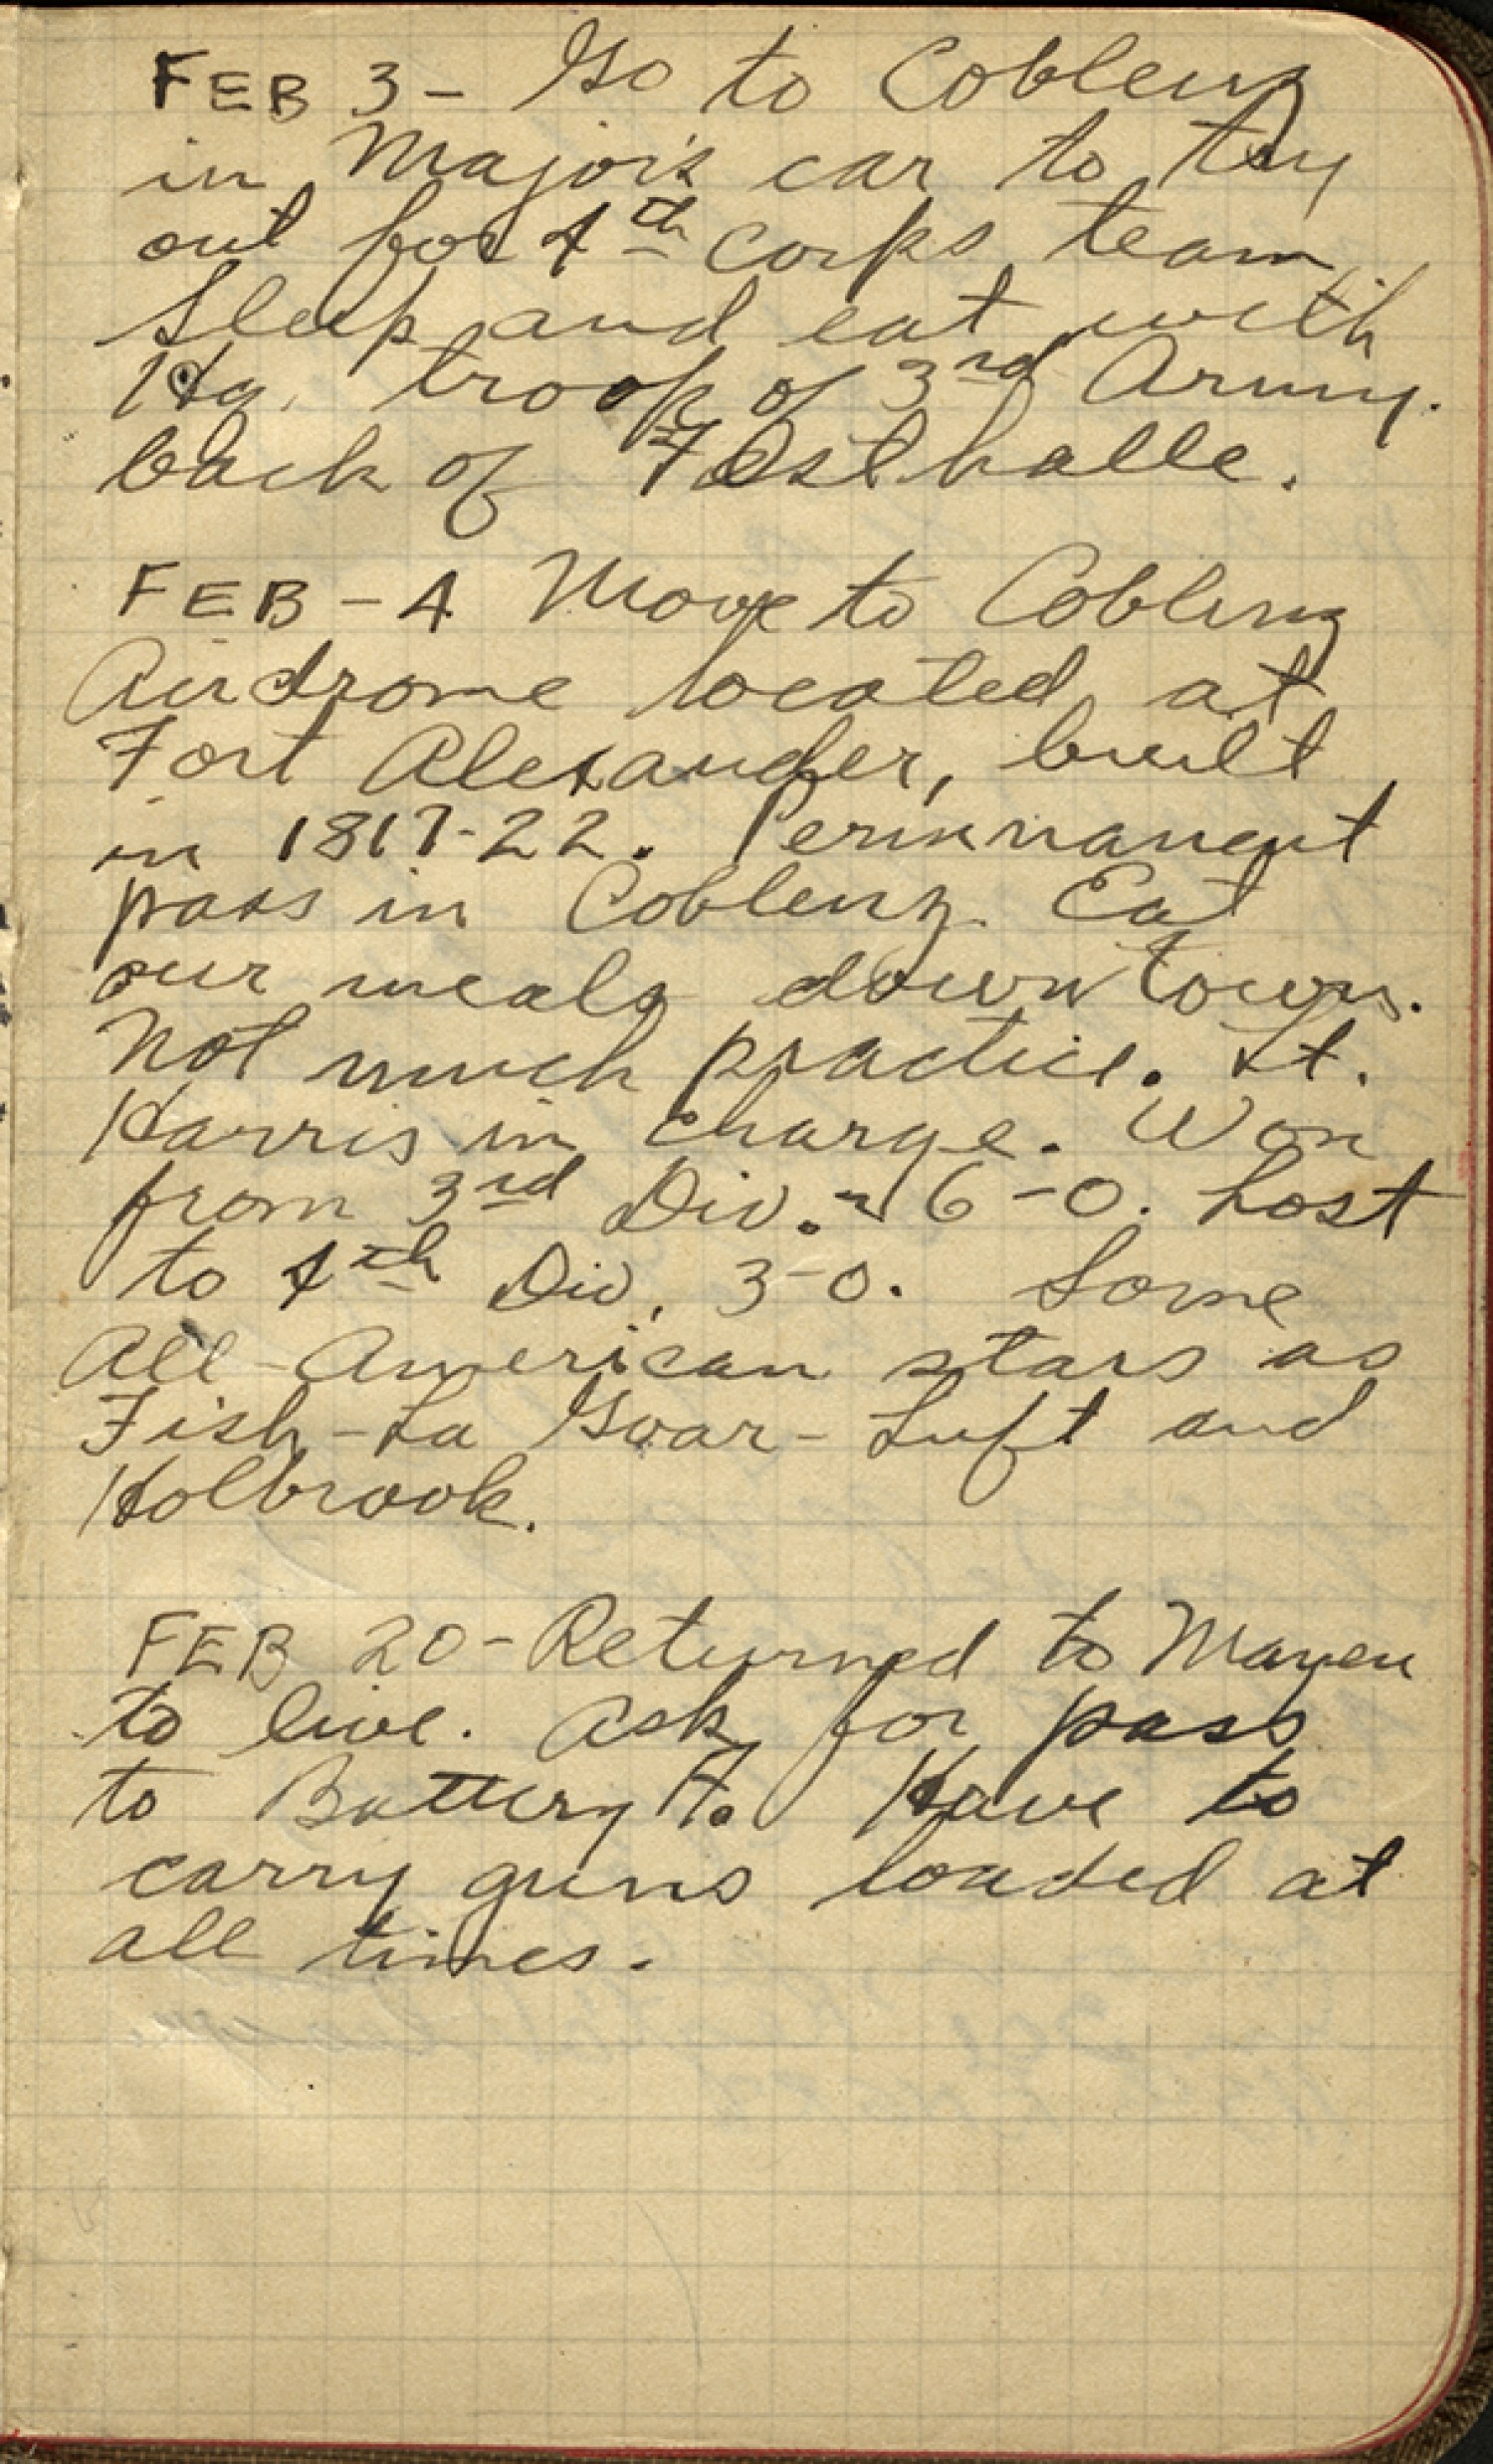 FEB 3 - Go to Coblenz
in Major's car to try
out for 4th Corps team.
Sleep and eat with
Hq. troop of 3rd Army.
back of Festhalle.
FEB - 4 Move to Coblenz
Airdrome located at
Fort Alexander, built
in 1817-22. Permnanent
pass in Coblenz. Eat
our meals down town.
Not much practice. Lt.
Harris in charge. Won
from 3rd Div. - 6-0. Lost
to 4th Div. 3-0. Some
All-American stars as
Fish - La Goar - Luft and
Holbrook.
FEB 20 - Returned to Mayen
to live. Ask for pass
to Battery F. Have to
carry guns loaded at
all times.